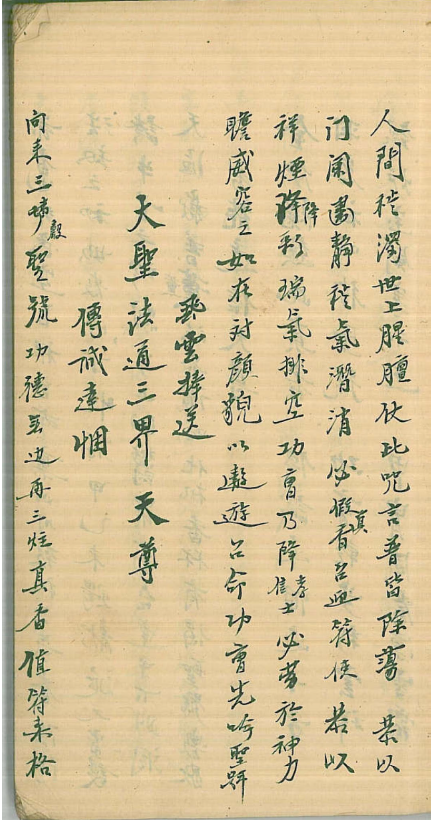 人間秽濁世上腥膻仗此咒言普皆除蕩 恭以
门闌晝静秽氣潛消必假真香召迎符使 恭以
祥煙降彩瑞氣排空功曹乃降孝信士必劳於神力
瞻威容之如在对顏貌以遨遊召命功曹先吟聖号
乘雲捧送
大聖法通三界天尊
傳誠達悃
向來三啓聖號功德無边再三炷真香值符來格